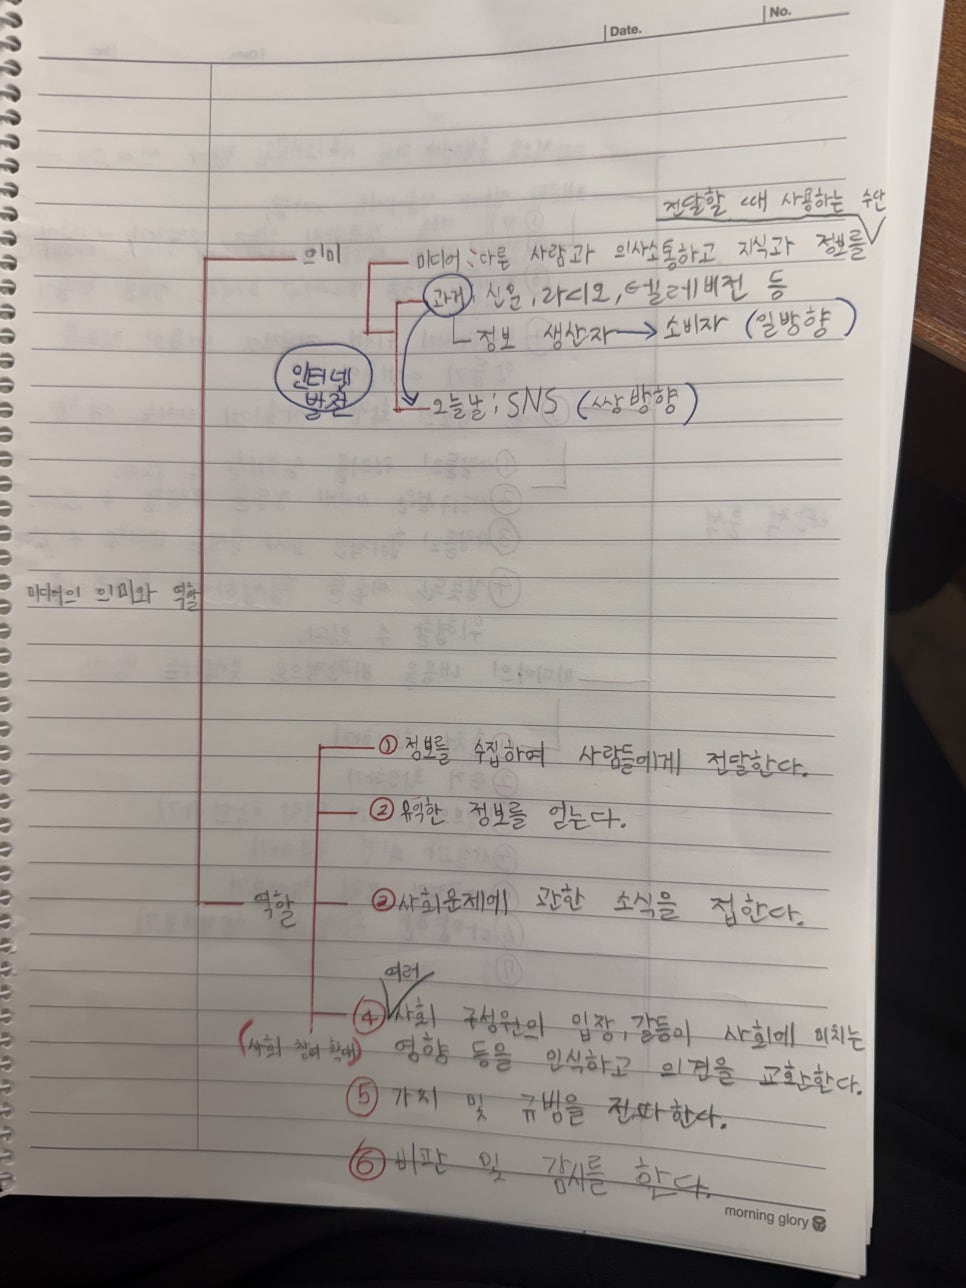 Date.
No.
전달할 때 사용하는 수단
의미
미디어 : 다른 사람과 의사소통하고 지식과 정보를
과거 : 신문, 라디오, 텔레비전 등
정보 생산자 → 소비자 (일방향)
인터넷
발전
오늘날 : SNS (쌍방향)
미디어의 의미와 역할
① 정보를 수집하여 사람들에게 전달한다.
② 유익한 정보를 얻는다.
역할
③ 사회문제에 관한 소식을 접한다.
여러
④ 사회 구성원의 입장, 갈등이 사회에 미치는
(사회 참여 확대) 영향 등을 인식하고 의견을 교환한다.
⑤ 가치 및 규범을 전파한다.
⑥ 비판 및 감시를 한다.
morning glory